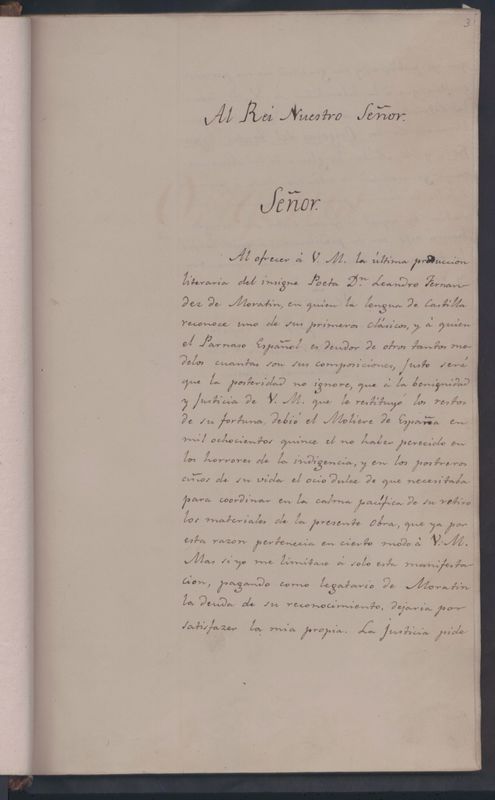 3
Al Rei Nuestro Señor.
Señor.
Al ofrecer á V. M. la última produccion
literaria del insigne Poeta Dn. Leandro Fernan-
dez de Moratin, en quien la lengua de Castilla
reconoce uno de sus primeros clásicos, y á quien
el Parnaso Español es deudor de otros tantos mo-
delos cuantas son sus composiciones, justo será
que la posteridad no ignore, que á la benignidad
y Justicia de V. M. que le restituyó los restos
de su fortuna, debió el Moliere de España en
mil ochocientos quince el no haber perecido en
los horrores de la indigencia, y en los postreros
años de su vida el ocio dulce de que necesitaba
para coordinar en la calma pacífica de su retiro
los materiales de la presente obra, que ya por
esta razon pertenecia en cierto modo á V. M.
Mas si yo me limitase á solo esta manifesta-
cion, pagando como legatario de Moratin
la deuda de su reconocimiento, dejaria por
satisfazer la mia propia. La Justicia pide